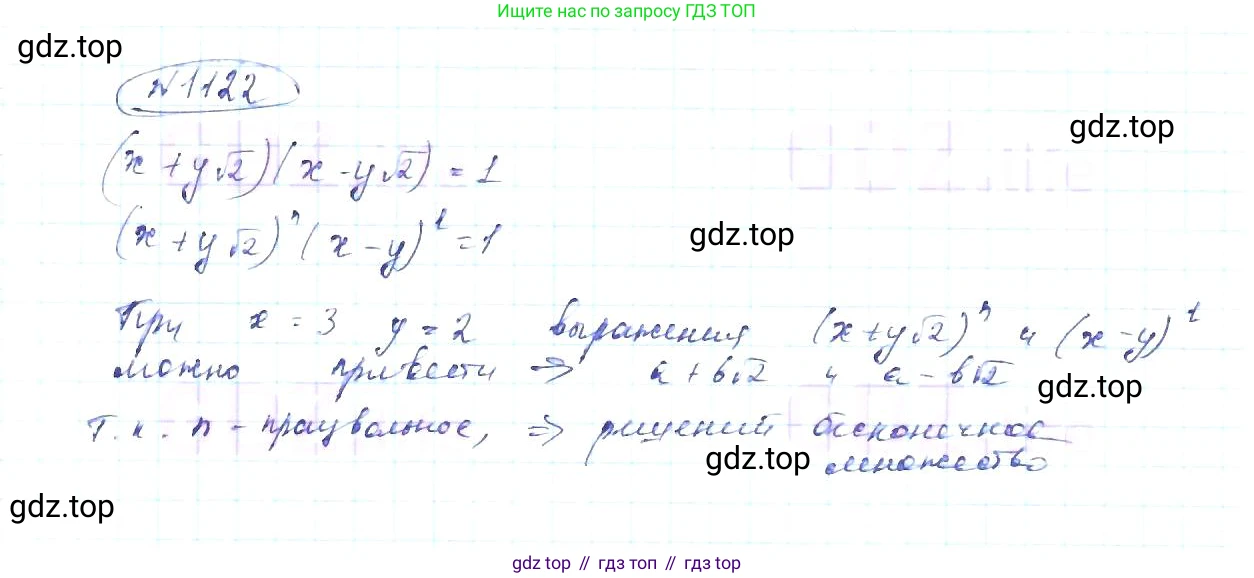 Ищите нас по запросу ГДЗ ТОП
gdz.top
№1122
gdz.top
(x + y√2)(x - y√2) = 1
(x + y√2)ⁿ (x - y)¹ = 1
gdz.top
При x = 3 y = 2 выражения (x + y√2)ⁿ и (x - y)¹
можно привести => a + b√2 и a - b√2
gdz.top
т.к. n - працвольное, => решений бесконечное
gdz.top
множество
gdz.top
gdz.top // гдз топ // gdz top